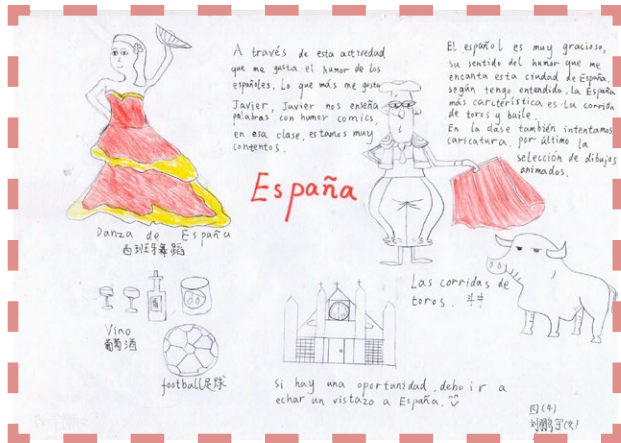 A través de esta actividad
que me gusta el humor de los
españoles. Lo que más me gusta
Javier, Javier nos enseña
palabras con humor comics,
en esa clase, estamos muy
contentos.
El español es muy gracioso,
su sentido del humor que me
encanta esta ciudad de España.
según tengo entendido, la España
más carcterística es la corrida
de toros y baile.
En la clase también intentamos
caricatura, por último la
selección de dibujos
animados.
España
Danza de España
西班牙舞蹈
Las corridas de
toros. 斗牛
酒
Vino
葡萄酒
football足球
si hay una oportunidad, debo ir a
echar un vistazo a España.
四(4)